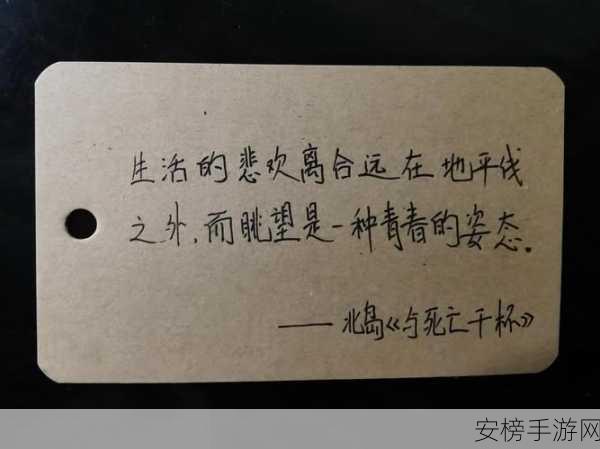 生活的悲欢离合远在地平线
之外，而眺望是一种青春的姿态。
——北岛《与死亡干杯》
安榜手游网